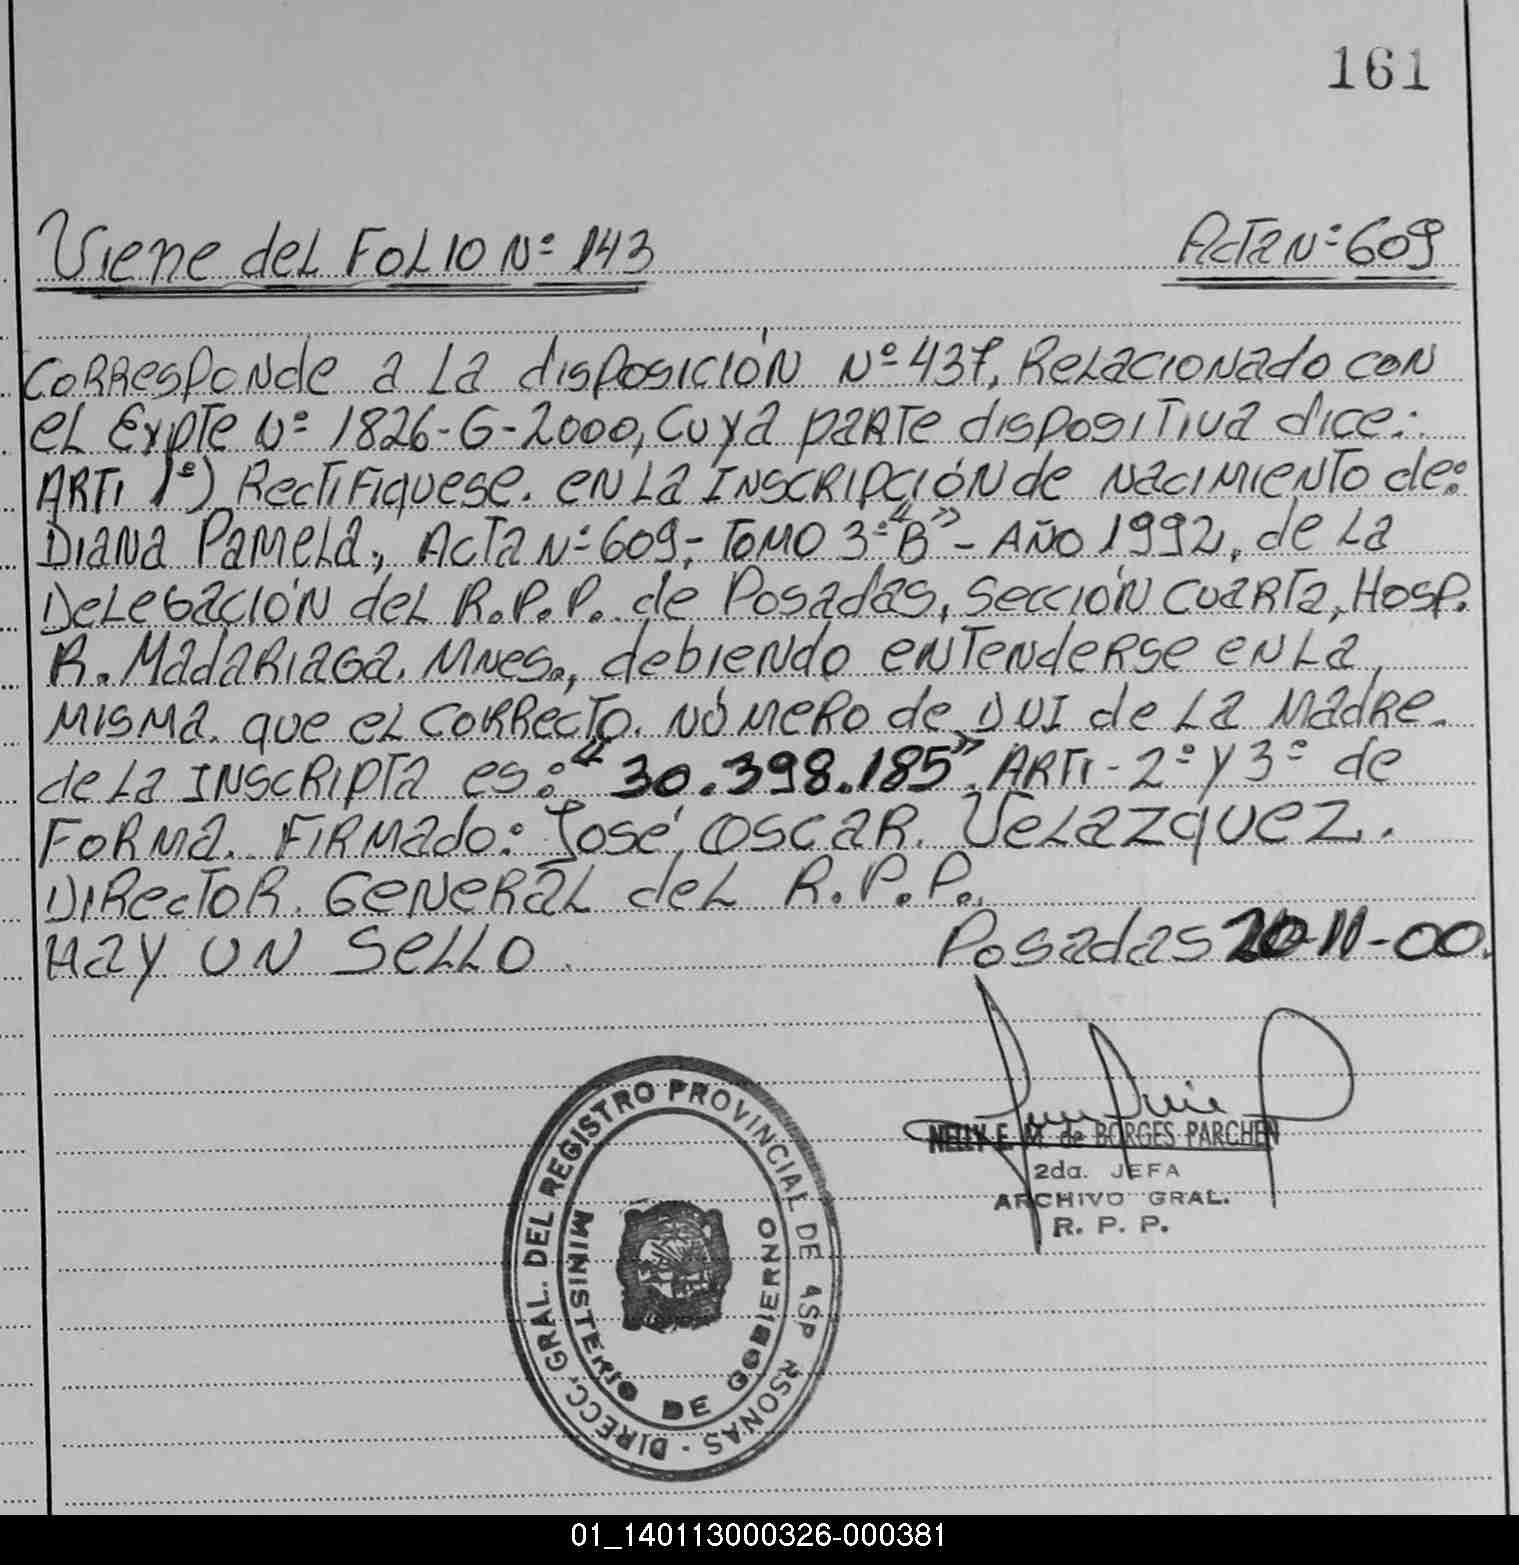 161
Viene del Folio Nº 143 Acta Nº 609
Corresponde a la disposición Nº 437, Relacionado con
el Expte Nº 1826-G-2000, cuya parte dispositiva dice:
Arti 1º) Rectifiquese. en la Inscripción de nacimiento de:
Diana Pamela, Acta Nº 609, Tomo 3º "B" - Año 1992, de la
Delegación del R.P.P. de Posadas, Sección Cuarta, Hosp.
R. Madariaga. Mnes., debiendo entenderse en la
misma. que el correcto. número de DNI de la madre.
de la Inscripta es: "30.398.185". Arti - 2º y 3º de
Forma. Firmado: José Oscar. Velazquez.
Director. General del R.P.P.
Hay un sello. Posadas 20-11-00.
NELLY E. M. de BORGES PARCHEN
2da. JEFA
ARCHIVO GRAL.
R. P. P.
DIRECC. GRAL. DEL REGISTRO PROVINCIAL DE PERSONAS
MINISTERIO DE GOBIERNO
01_140113000326-000381